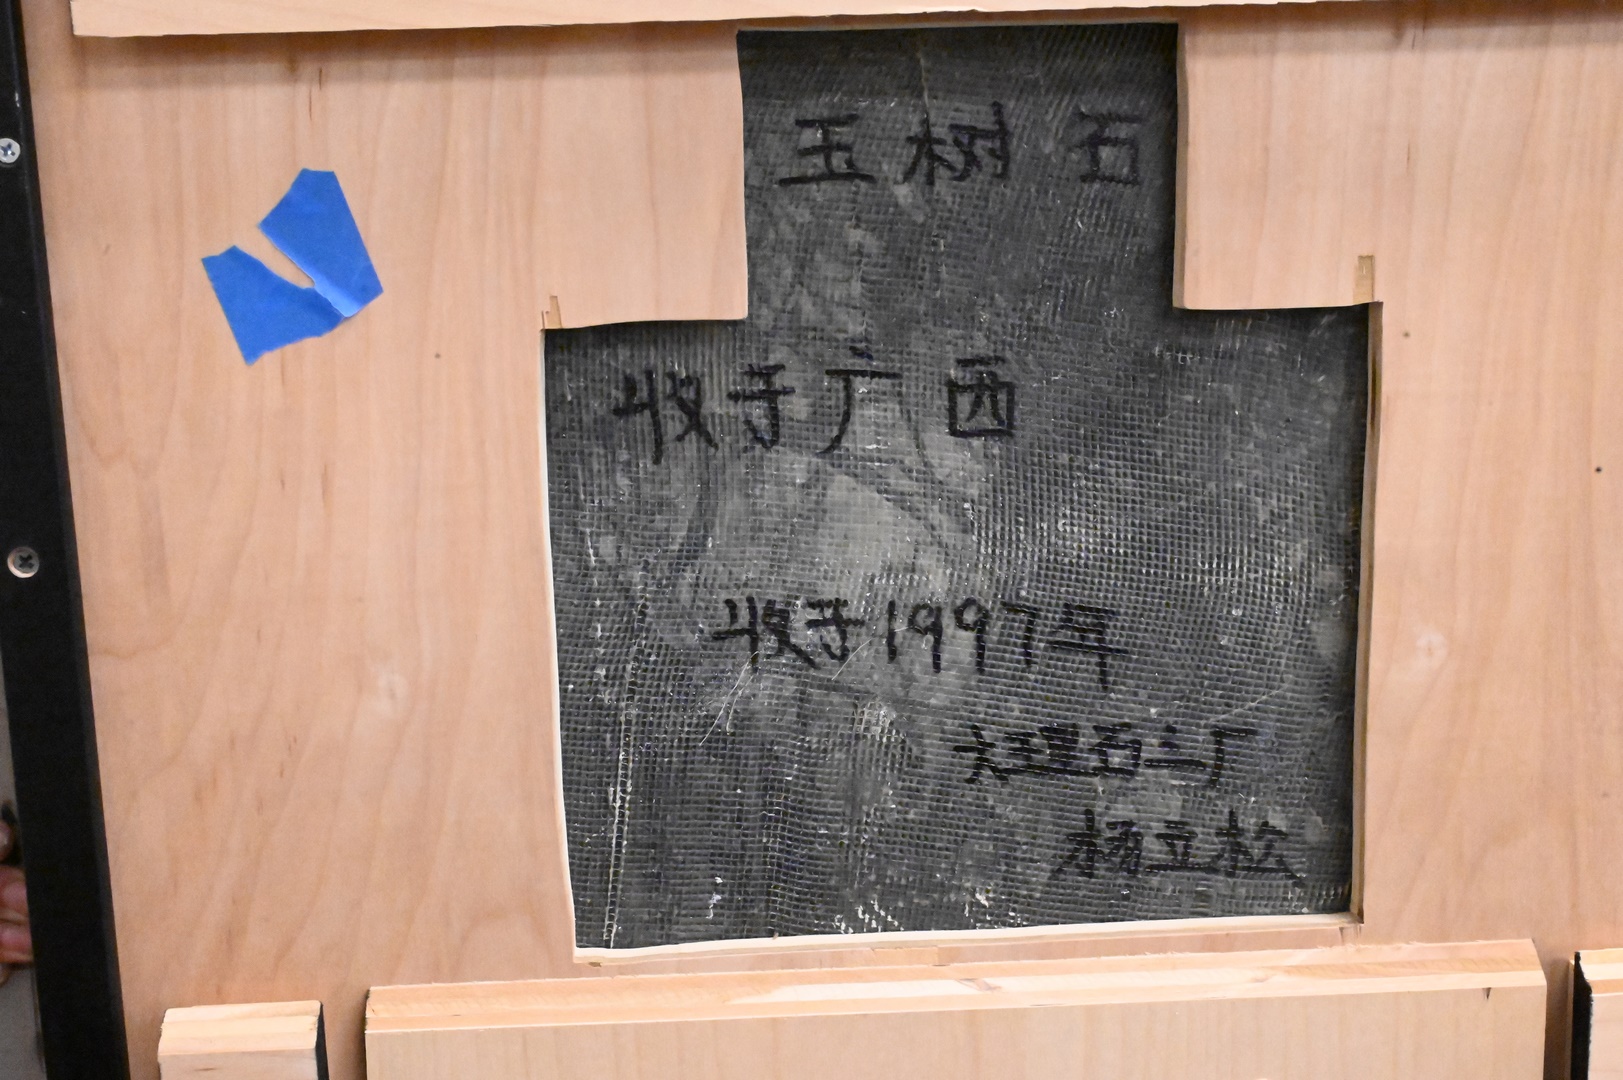 玉树石
收于广西
收于1997年
大理石三厂
杨立松